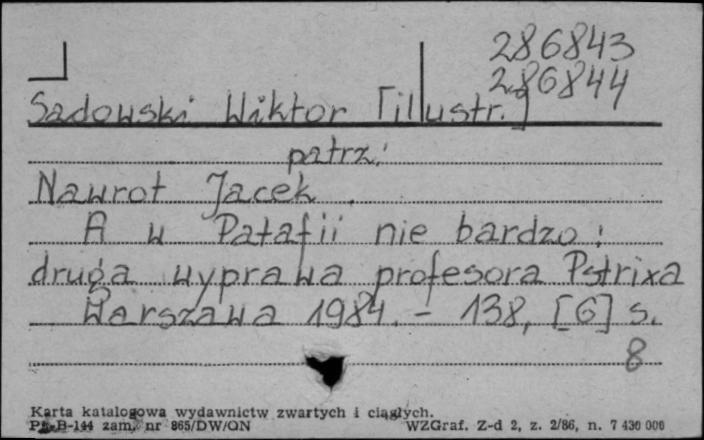 286843
286844
Sadowski Wiktor [illustr.]
patrz:
Nawrot Jacek.
A w Patafii nie bardzo:
druga wyprawa profesora Pstrixa
Warszawa 1984. - 138, [6] s.
8
Karta katalogowa wydawnictw zwartych i ciągłych.
Pu-B-144 zam. nr 865/DW/ON WZGraf. Z-d 2, z. 2/86, n. 7 430 000